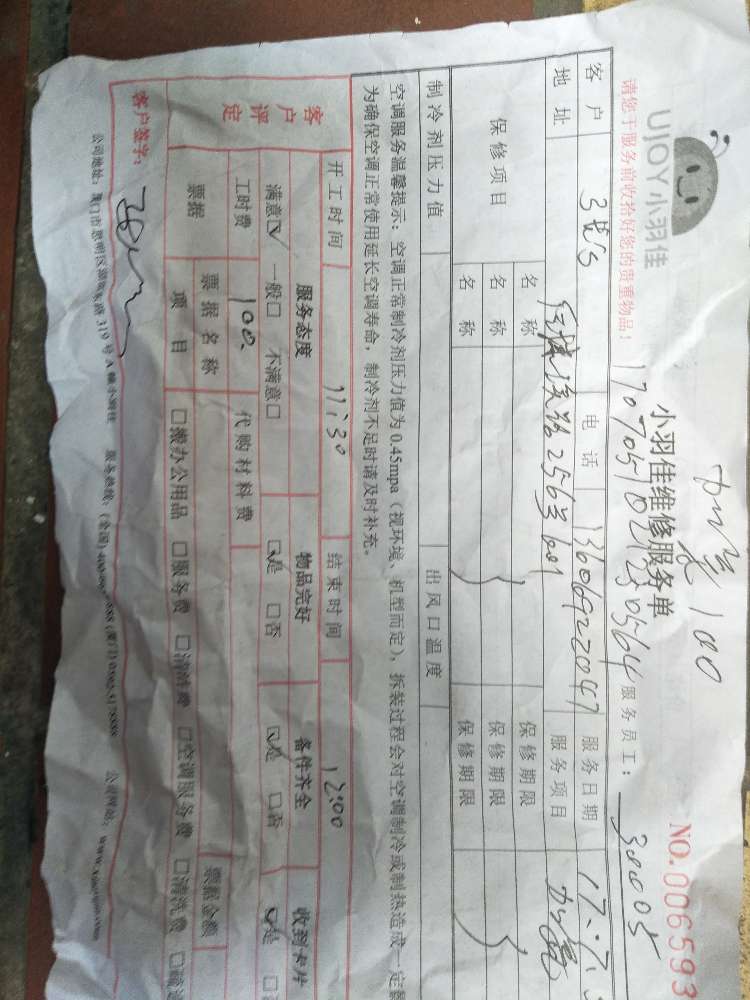 UJOY小羽佳
小羽佳维修服务单
NO.0066593
加氟100
请您于服务前收拾好您的贵重物品！
服务员工：30005
客户
电话
服务日期 17.7.
地址
256号601
服务项目 加氟
保修项目
名称
保修期限
名称
保修期限
名称
保修期限
制冷剂压力值
出风口温度
空调服务温馨提示：空调正常制冷剂压力值为0.45mpa（视环境、机型而定），拆装过程会对空调制冷或制热造成一定
为确保空调正常使用延长空调寿命，制冷剂不足时请及时补充。
客户评定
开工时间 11:30
结束时间 12:00
服务态度
物品完好
备件齐全
收到卡片
满意☑ 一般□ 不满意□
☑是 □否
☑是 □否
☑是 □
工时费 100.
代购材料费
票据
票据名称
票据金额
项目
□搬办公用品 □服务费 □清洁费 □空调服务费 □清洗费
客户签字：
公司地址：厦门市思明区湖滨东路319号A幢小羽佳 服务热线：
公司网站：